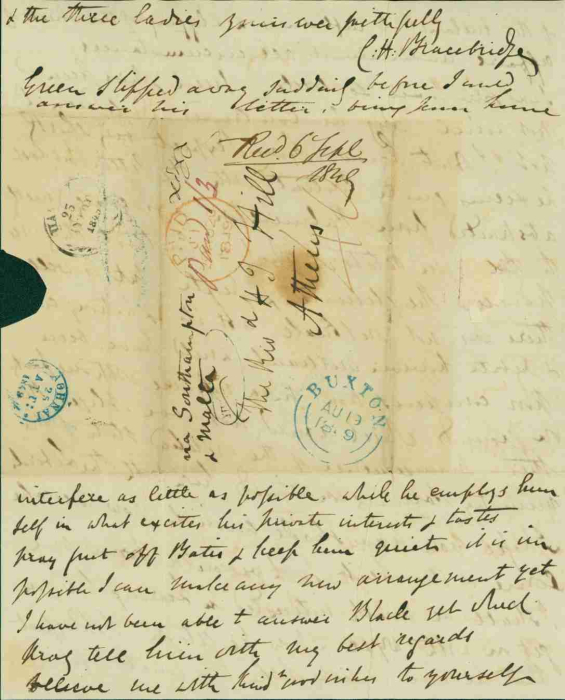 & the three ladies yours ever faithfully
C. H. Bracebridge
Green slipped away suddenly before I could
answer his letter, being from home
Recd. 6 Sept
1849
Paid 1/3
The Revd J H Hill
Athens
via Southampton
& Malta
BUXTON
AU 19
1849
interfere as little as possible while he employs him
self in what excites his private interests & tastes
pray put off Bates & keep him quiet. it is im
possible I can make any new arrangement yet
I have not been able to answer Black yet which
pray tell him with my best regards
believe me with kind good wishes to yourself